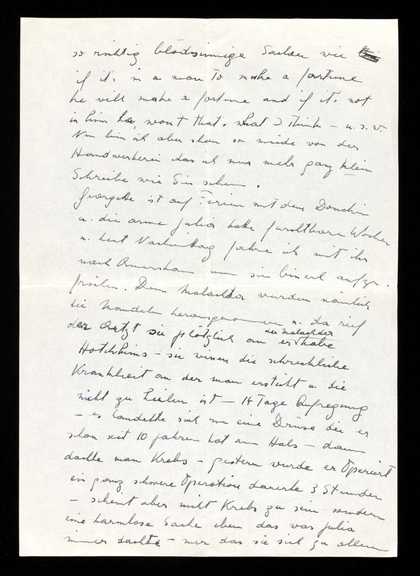 so richtig blödsinnige Sachen wie
if it, in a man to make a fortune
he will make a fortune and if it, not
in him he, wont that, what I think – u. s. w.
Nun bin ich aber schon so müde von der
Handwerkerei das ich nur mehr ganz klein
Schreibe wie Sie sehen.
ist auf Ferien mit dem
u. die arme Julia hatte furchtbare Wochen
u. heut Nachmittag fahre ich mit ihr
nach Amersham um sie bissel
Dem wurden nämlich
die Mandeln herausgenommen u. da rief
der Artzt sie plötzlich an er habe
Hotchkins – sie wissen die schreckliche
Krankheit an der man erstickt u. die
nicht zu heilen ist – 14 Tage Aufregung
– es handelte sich um eine Drüse die er
schon seit 10 Jahren hat am Hals – dann
dachte man Krebs – gestern wurde er Operiert
ein ganz schwere Operation dauerte 3 Stunden
– scheint aber nicht Krebs zu sein sondern
eine harmlose Sache eben das was Julia
immer dachte – nur das sie sich zu allem